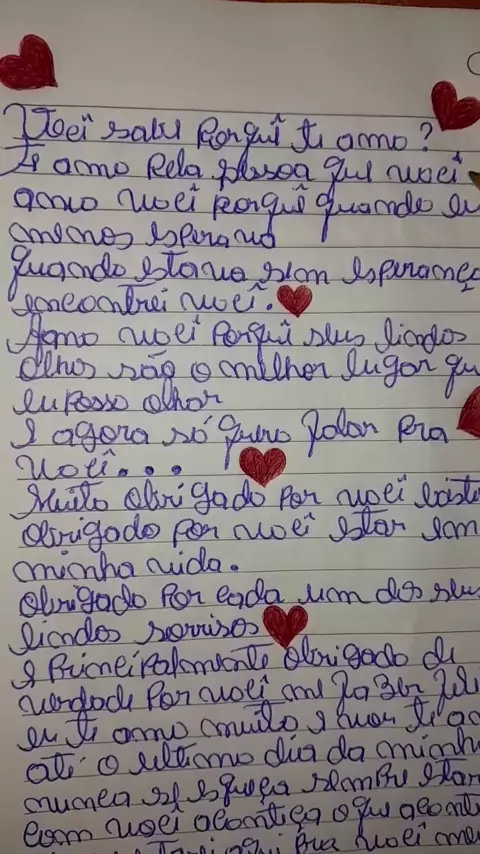 Você sabe porquê te amo?
Te amo pela pessoa que você
amo você porquê quando eu
menos esperava
quando estava sem esperanç
encontrei você.
Amo você porquê seus lindos
olhos são o melhor lugar qu
eu posso olhar
E agora só quero falar pra
você...
Muito obrigado por você existi
obrigado por você estar em
minha vida.
Obrigado por cada um dos seus
lindos sorrisos
E principalmente obrigado de
verdade por você me fazer feli
eu te amo muito e vou te a
até o ultimo dia da minha
nunca se esqueça sempre esta
com você aconteça o que acont
aqui pra você me